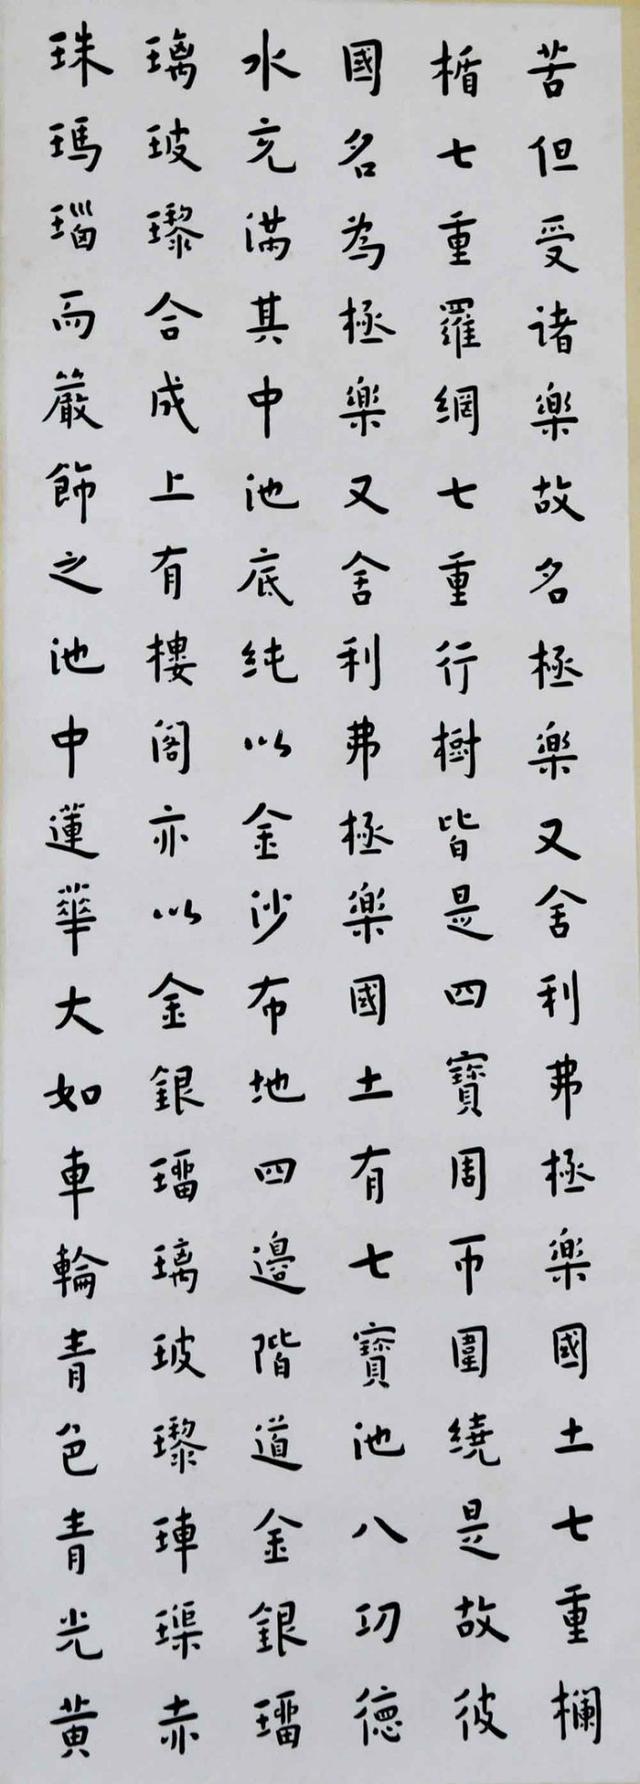 苦但受诸樂故名極樂又舍利弗極樂國土七重欄
楯七重羅網七重行樹皆是四寶周帀圍繞是故彼
國名為極樂又舍利弗極樂國土有七寶池八功德
水充满其中池底純以金沙布地四邊階道金銀瑠
璃玻瓈合成上有樓閣亦以金銀瑠璃玻瓈硨磲赤
珠瑪瑙而嚴飾之池中蓮華大如車輪青色青光黃